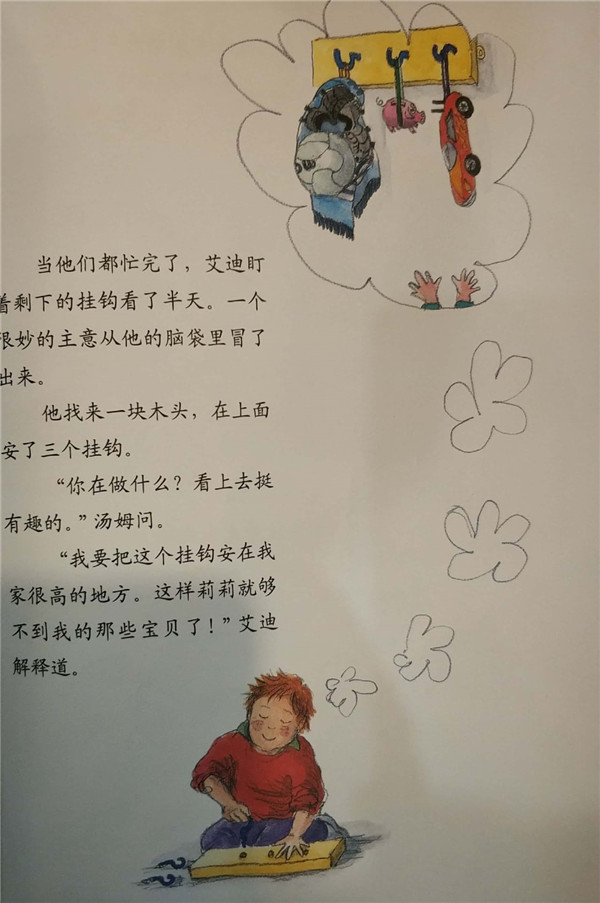 当他们都忙完了，艾迪盯
着剩下的挂钩看了半天。一个
很妙的主意从他的脑袋里冒了
出来。
他找来一块木头，在上面
安了三个挂钩。
“你在做什么？看上去挺
有趣的。”汤姆问。
“我要把这个挂钩安在我
家很高的地方。这样莉莉就够
不到我的那些宝贝了！”艾迪
解释道。